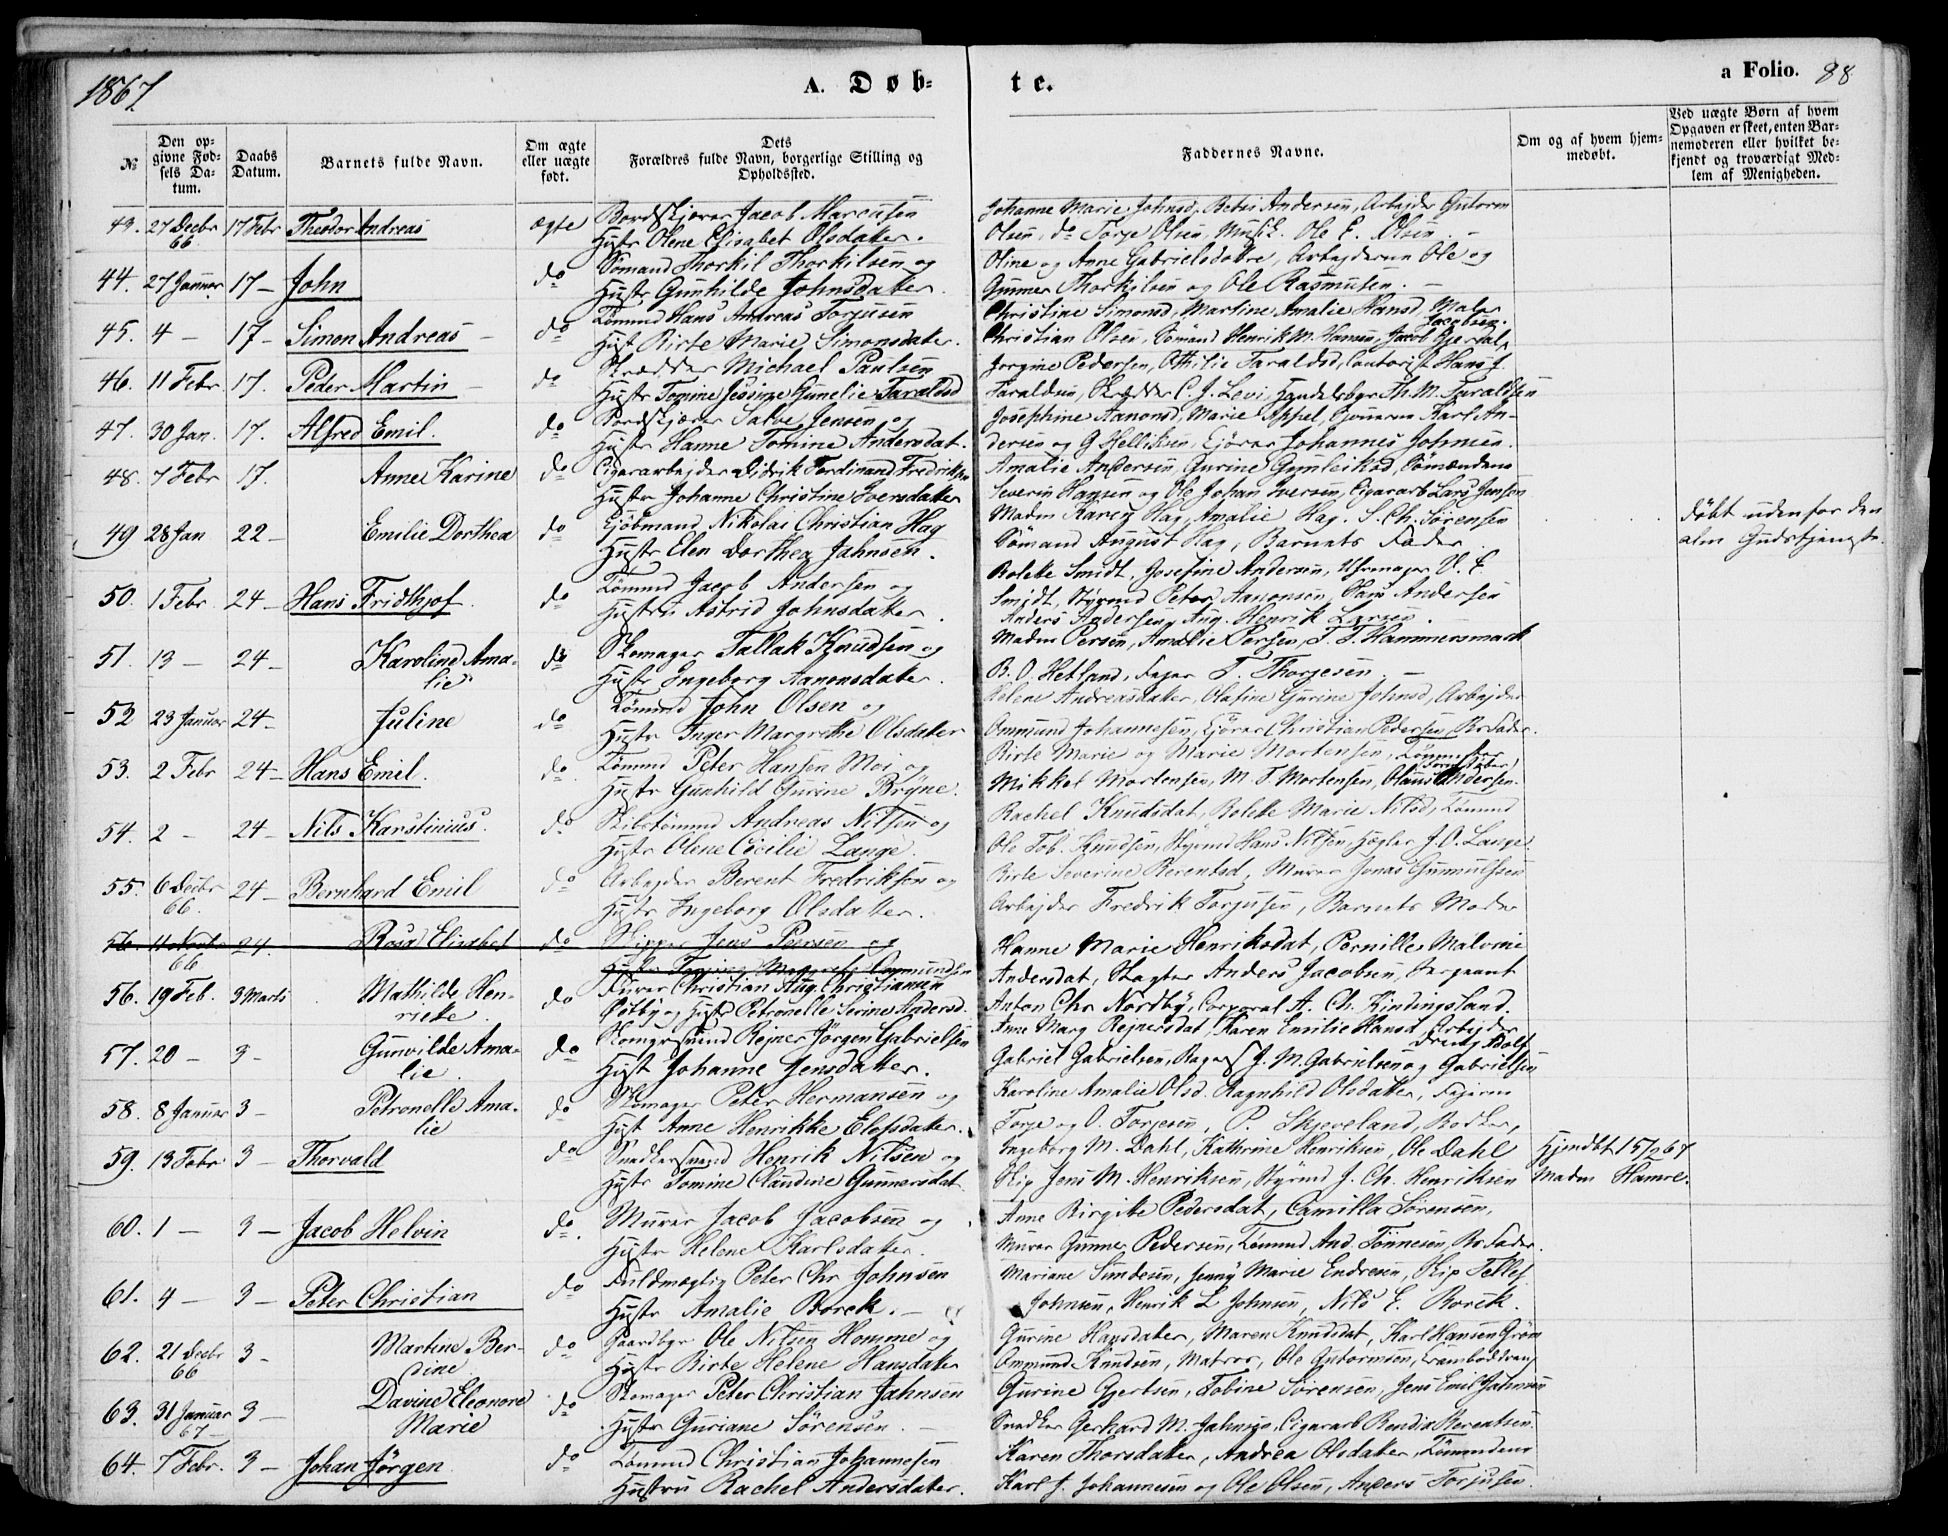 1867
A. Døb-
te.
a Folio. 88
№
Den op-
givne Fød-
sels Da-
tum.
Daabs
Datum.
Barnets fulde Navn.
Om ægte
eller uægte
født.
Dets
Forældres fulde Navn, borgerlige Stilling og
Opholdssted.
Faddernes Navne.
Om og af hvem hjem-
medøbt.
Ved uægte Børn af hvem
Opgaven er skeet, enten Bar-
nemoderen eller hvilket be-
kjendt og troværdigt Med-
lem af Menigheden.
43. 27 Decbr 66 17 Febr Theodor Andreas ægte Bordskjærer Jacob Marcusen
Hustr Olene Elisabet Olsdatter.
Johanne Marie Johnsd, Andersen, Arbejder Gutorm
Olsen, do Torje Olsen, Musik. Ole E. Olsen.
44. 27 Januar 17 – John do Sømand Thorkil Thorkilsen og
Hustr Gunhilde Johnsdatter.
Oline og Anne Gabrielsdøtre, Arbejderne Ole og
Gunner Thorkilsen og Ole Rasmusen.
45. 4 – 17 – Simon Andreas do Tømmd Hans Andreas Torjusen
Hust Birte Marie Simonsdatter.
Christine Simonsd, Martine Amalie Hansd, Maler Jacobsen
Christian Olsen, Sømand Henrik M. Hansen, Jacob
46. 11 Febr 17. Peder Martin do Skrædder Michael Paulsen
Hustr Tomine Jessine Gunelie Taraldsd
Jorgine Pedersen, Othilie Taraldsd, Contorist Hans J.
Taraldsen, Skrædder C. J. Levi, Handelsbgr Th. M. Taraldsen
47. 30 Jan. 17. Alfred Emil. do Bordskjærer Salve Jensen og
Hustr Hanne Tomine Andersdat.
Josephine Aanonsd, Marie Appel, Karl An-
dersen og G Helliksen, Kjører Johannes Johnsen.
48. 7 Febr 17. Anne Karine do Cigararbejder Didrik Ferdinand Fredriksen
Hustr Johanne Christine Iversdatter
Amalie Andersen, Gurine Sømændene
Severin Hansen og Ole Johan Iversen, Cigararb Lars Jensen
49 28 Jan 22 – Emilie Dorthea do Kjøbmand Nikolai Christian Hag
Hustr Elen Dorthea Jahnsen.
Madm Karen Hag, Amalie Hag. S. Ch. Sørensen
Sømand August Hag, Barnets Fader.
Døbt udenfor den
alm Gudstjeneste.
50. 1 Febr 24 – Hans Fridthjof. do Tømmd Jacob Andersen og
Hustru Astrid Johnsdatter.
Bolette Smidt, Josefine Andersen, Uhrmager O. E.
Smidt, Styrmd Peter Aanonsen, Hans Andersen
Anders Andersen, Aug. Henrik Larsen.
51. 13 – 24 – Karoline Ama-
lie do Skomager Tallak Knudsen og
Hustr Ingeborg Aanonsdatter.
Madm Persen, Amalie Persen, T. T. Hammersmark
B. O. Hetland, Fager T. Thorjesen.
52 23 Januar 24 – Juline do Tømmd John Olsen og
Hustr Inger Margrethe Olsdatter
Helene Andreasdatter, Olafine Gurine Johnsd, Arbejder
Ommund Johannesen, Kjører Christian Pedersen, Br Fader.
53. 2 Febr 24 – Hans Emil. do Tømmd Peter Hansen Moi og
Hustr Gunhild Gurine Bryne.
Birte Marie og Marie Mortensen, Tømmester
Mikkel Mortensen, M. T. Mortensen, Olaus Andersen.
54. 2 – 24 – Nils Karstinius. do Skibstømmd Andreas Nilsen og
Hustr Oline Cecilie Lange.
Rachel Knudsdat, Bolette Marie Nilsd, Tømmd
Ole Tob. Knudsen, Styrmd Hans Nilsen, Hegter J. O. Lange.
55. 6 Decbr 66. 24 – Bernhard Emil do Arbejder Berent Fredriksen og
Hustr Ingeborg Olsdatter.
Birte Severine Berentsd, Murer Jonas Gunnulfsen
Arbejder Fredrik Torjusen, Barnets Moder
56. 11 Novbr 66 24. Rosa Elisabet do Skipper Jens Peersen og
Hustr Ommundsen
56. 19 Feb. 3 Marts Mathilde Hen-
riette. do Furer Christian Aug. Christiansen
Østby og Hustr Petronelle Serine Andersd.
Hanne Marie Henriksdat, Pernille Malvine
Andersdat, Slagter Anders Jacobsen, Sergeant
Anton Chr Nordby, Corporal A. Ch. Kindingsland.
57. 20 – 3 – Gunvilde Ama-
lie. do Rejner Jørgen Gabrielsen
Hust Johanne Jensdatter.
Anne Marg Rejnersdat, Karen Emilie Hansd, Arbejder
Gabriel Gabrielsen, Bager J. M. Gabrielsen og Gabrielsen
58. 8 Januar 3 – Petronelle Ama-
lie do Skomager Peter Hermansen og
Hust Anne Henrikke Elefsdatter.
Karoline Amalie Olsd. Ragnhild Olsdatter, Fejerne
Torje og O. Torjesen, P. Skjeveland, Bødker,
59. 13 Febr 3 – Thorvald do Snedkersvend Henrik Nilsen og
Hustr Tomine Claudine Gunnersdat
Ingeborg M. Dahl, Kathrine Henriksen, Ole Dahl
Skip Jens M. Henriksen, Styrmd J. Ch. Henriksen
Hjmdbt 15/2 67
Madm Hamre.
60. 1 – 3 – Jacob Helvin do. Murer Jacob Jacobsen og
Hustr Helene Karlsdatter.
Anne Birgitte Pedersdat, Camilla Sørensen,
Murer Gunner Pedersen, Tømmd And. Tønnesen, Br Fader.
61. 4 – 3 – Peter Christian do Fuldmægtig Peter Chr Johnsen
Hustr Amalie Borck. –
Mariane Simdesen, Jenny Marie Endresen, Skip Tellef
Johnsen, Henrik L Johnsen, Nils E. Borck.
62. 21 Decbr 66 3 – Martine Ber-
dine do Gaardbgr Ole Nilsen Homme og
Hustr Birte Helene Hansdatter
Gurine Hansdatter, Maren Knudsdat, Karl Hansen Grøm
Ommund Knudsen, Matros, Ole Gutormsen,
63. 31 Januar 67 3 – Davine Eleonore
Marie do Skomager Peter Christian Jahnsen
Hustr Guriane Sørensen. –
Gurine Gjertsen, Tobine Sørensen, Jens Emil Jahnsen
Snedker Gerhard M. Jahnsen, Cigararb Bendix Berentsen
64. 7 Febr. 3 – Johan Jørgen do Tømmd Christian Johannesen
Hustru Rachel Andersdatter.
Karen Thorsdatter, Andrea Olsdatter, Tømmdene
Karl J. Johannesen og Ole Olsen, Anders Torjusen.